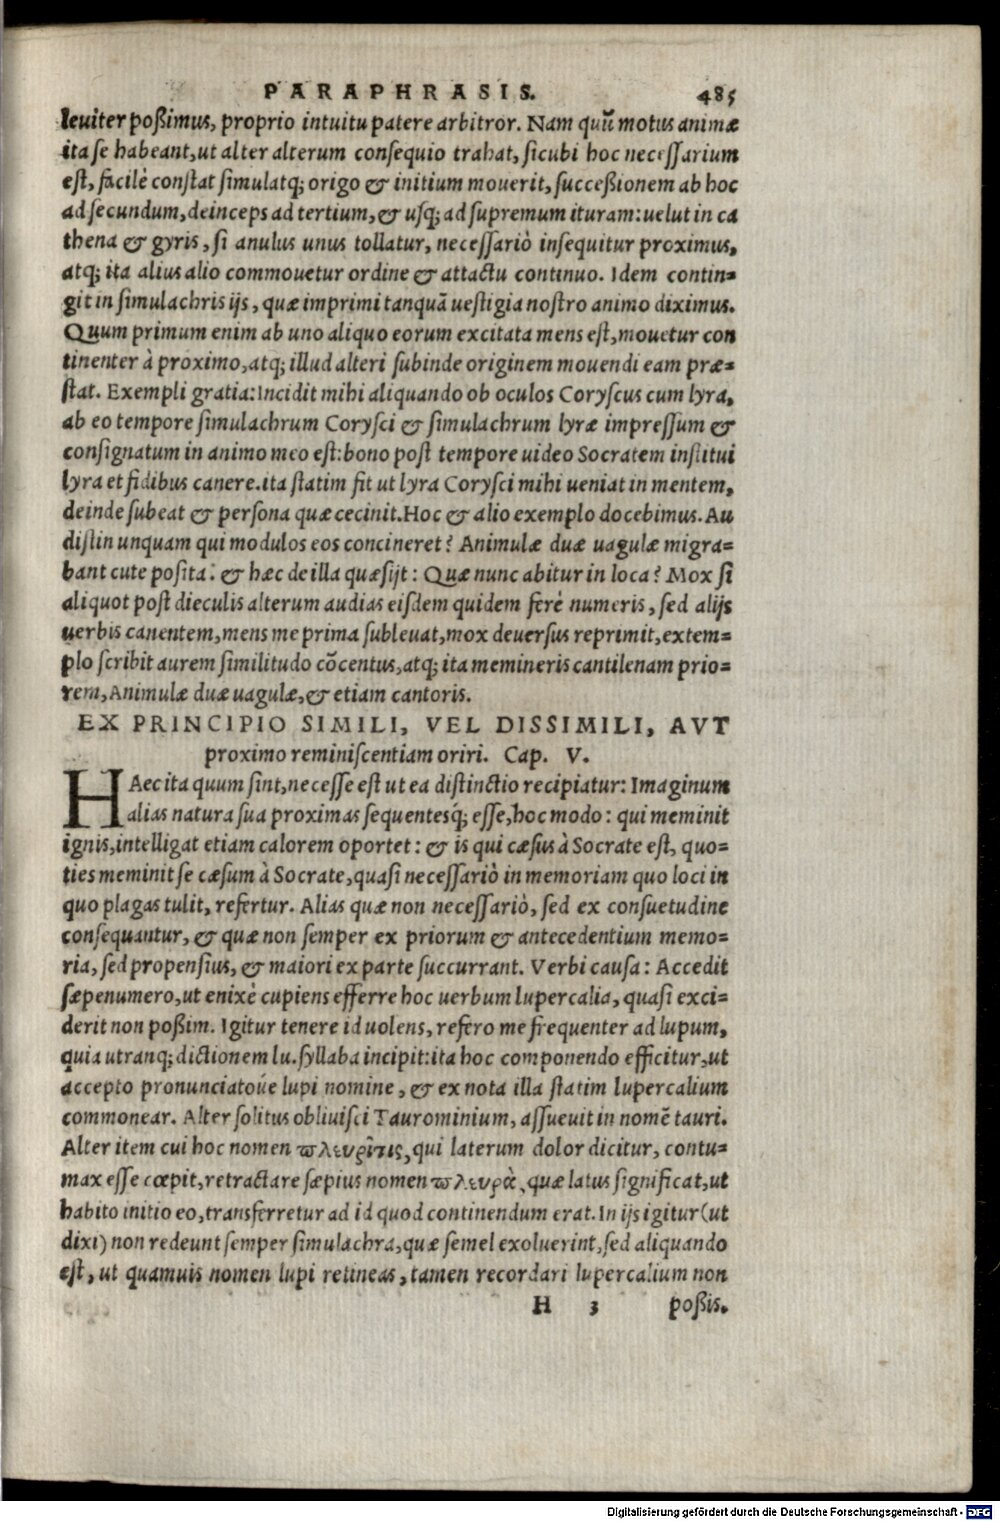 PARAPHRASIS. 485
leuiter poßimus, proprio intuitu patere arbitror. Nam quũ motus animæ
ita se habeant, ut alter alterum consequio trahat, sicubi hoc necessarium
est, facilè constat simulatq; origo & initium mouerit, successionem ab hoc
ad secundum, deinceps ad tertium, & usq; ad supremum ituram: uelut in ca
thena & gyris, si anulus unus tollatur, necessariò insequitur proximus,
atq; ita alius alio commouetur ordine & attactu continuo. Idem contin=
git in simulachris ijs, quæ imprimi tanquã uestigia nostro animo diximus.
Quum primum enim ab uno aliquo eorum excitata mens est, mouetur con
tinenter à proximo, atq; illud alteri subinde originem mouendi eam præ=
stat. Exempli gratia: Incidit mihi aliquando ob oculos Coryscus cum lyra,
ab eo tempore simulachrum Corysci & simulachrum lyræ impressum &
consignatum in animo meo est: bono post tempore uideo Socratem institui
lyra et fidibus canere. ita statim fit ut lyra Corysci mihi ueniat in mentem,
deinde subeat & persona quæ cecinit. Hoc & alio exemplo docebimus. Au
distin unquam qui modulos eos concineret? Animulæ duæ uagulæ migra=
bant cute posita: & hæc de illa quæsijt: Quæ nunc abitur in loca? Mox si
aliquot post dieculis alterum audias eisdem quidem ferè numeris, sed alijs
uerbis canentem, mens me prima subleuat, mox deuersus reprimit, extem=
plo scribit aurem similitudo cõcentus, atq; ita memineris cantilenam prio=
rem, Animulæ duæ uagulæ, & etiam cantoris.
EX PRINCIPIO SIMILI, VEL DISSIMILI, AVT
proximo reminiscentiam oriri. Cap. V.
HAec ita quum sint, necesse est ut ea distinctio recipiatur: Imaginum
alias natura sua proximas sequentesq́; esse, hoc modo: qui meminit
ignis, intelligat etiam calorem oportet: & is qui cæsus à Socrate est, quo=
ties meminit se cæsum à Socrate, quasi necessariò in memoriam quo loci in
quo plagas tulit, refertur. Alias quæ non necessariò, sed ex consuetudine
consequantur, & quæ non semper ex priorum & antecedentium memo=
ria, sed propensius, & maiori ex parte succurrant. Verbi causa: Accedit
sæpenumero, ut enixè cupiens efferre hoc uerbum lupercalia, quasi exci=
derit non poßim. Igitur tenere id uolens, refero me frequenter ad lupum,
quia utranq; dictionem lu. syllaba incipit: ita hoc componendo efficitur, ut
accepto pronunciatoúe lupi nomine, & ex nota illa statim lupercalium
commonear. Alter solitus obliuisci Taurominium, assueuit in nomẽ tauri.
Alter item cui hoc nomen ϖλευρῖτις, qui laterum dolor dicitur, contu=
max esse cœpit, retractare sæpius nomen ϖλευρὰ, quæ latus significat, ut
habito initio eo, transferretur ad id quod continendum erat. In ijs igitur (ut
dixi) non redeunt semper simulachra, quæ semel exoluerint, sed aliquando
est, ut quamuis nomen lupi retineas, tamen recordari lupercalium non
H 3 poßis.
Digitalisierung gefördert durch die Deutsche Forschungsgemeinschaft - DFG